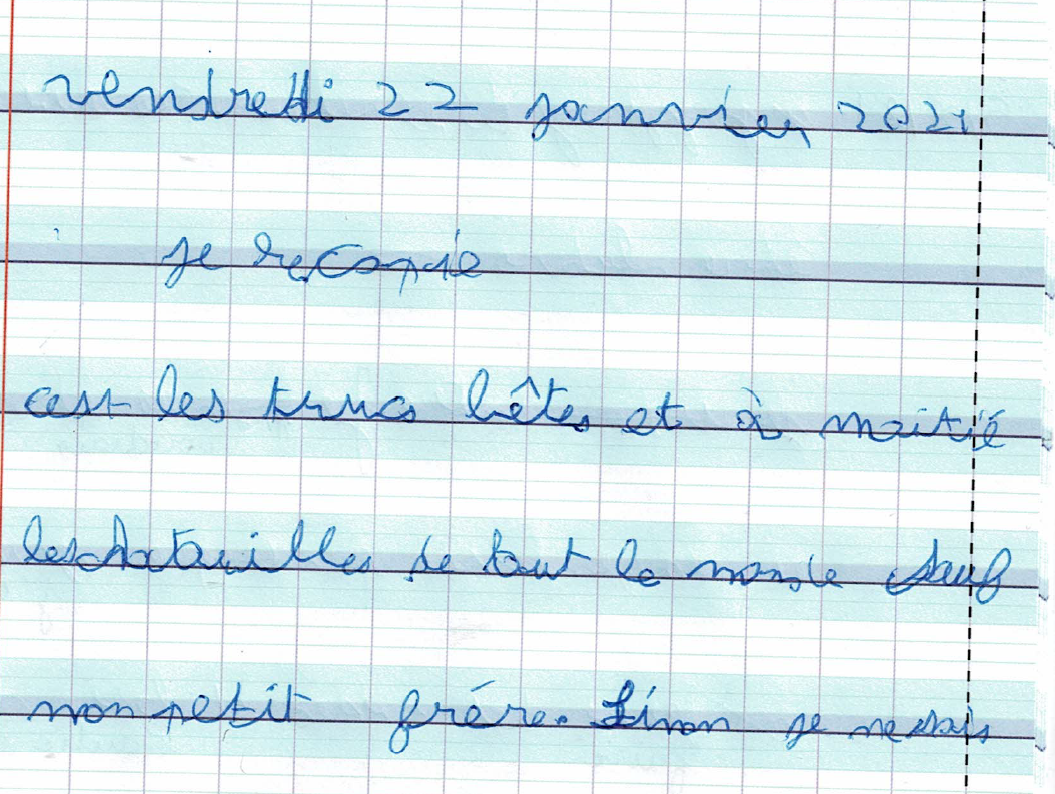 vendredi 22 janvier 2021
je recopie
cest les trucs bêtes et à moitié
les chatouilles de tout le monde sauf
mon petit frére. Sinon je ne sais